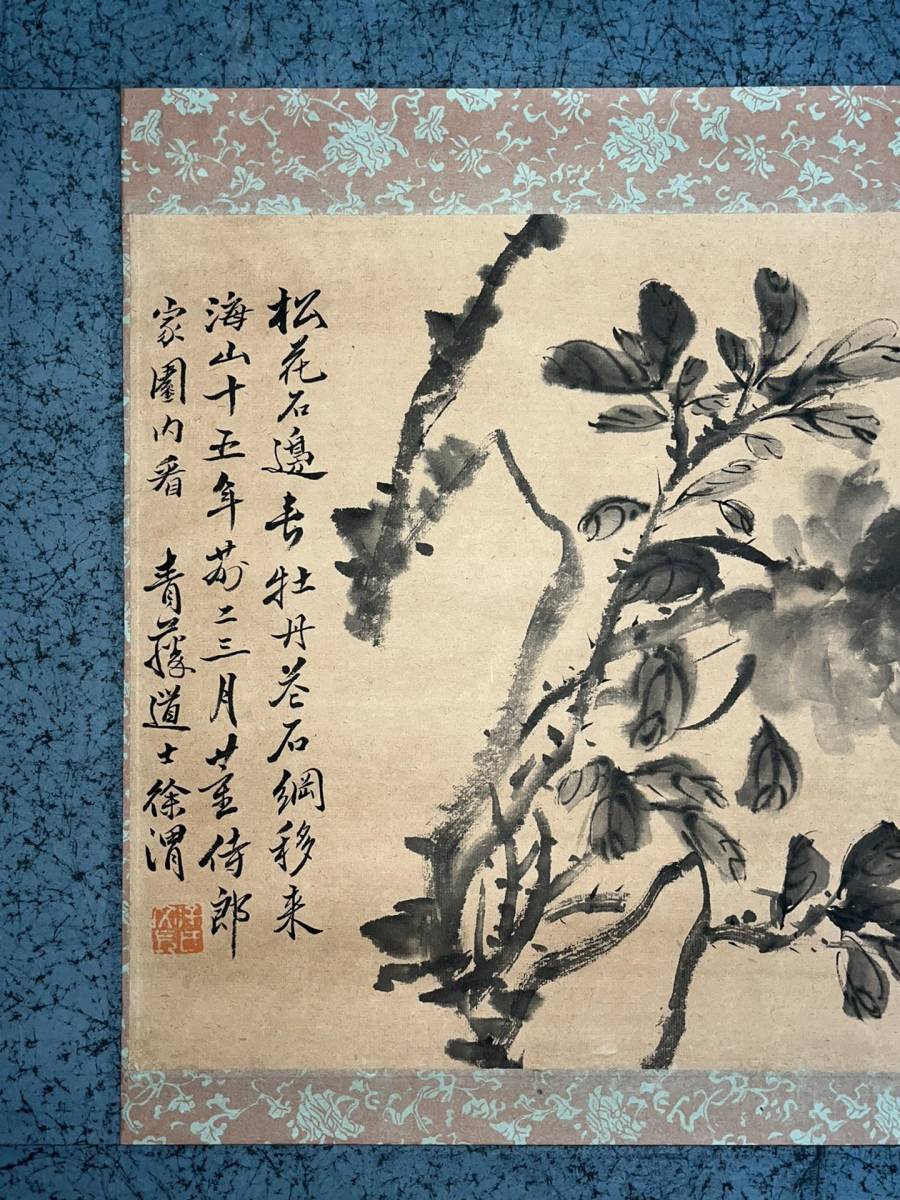 松花石邊春牡丹蒼石綱移来
海山十五年前二三月董侍郎
家園内看 青藤道士徐渭